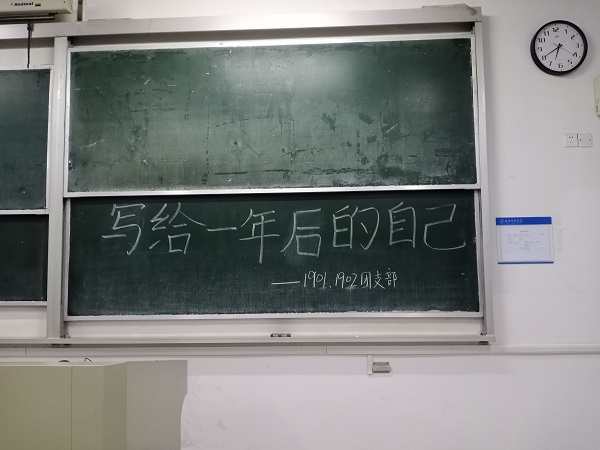 写给一年后的自己
——1901、1902团支部